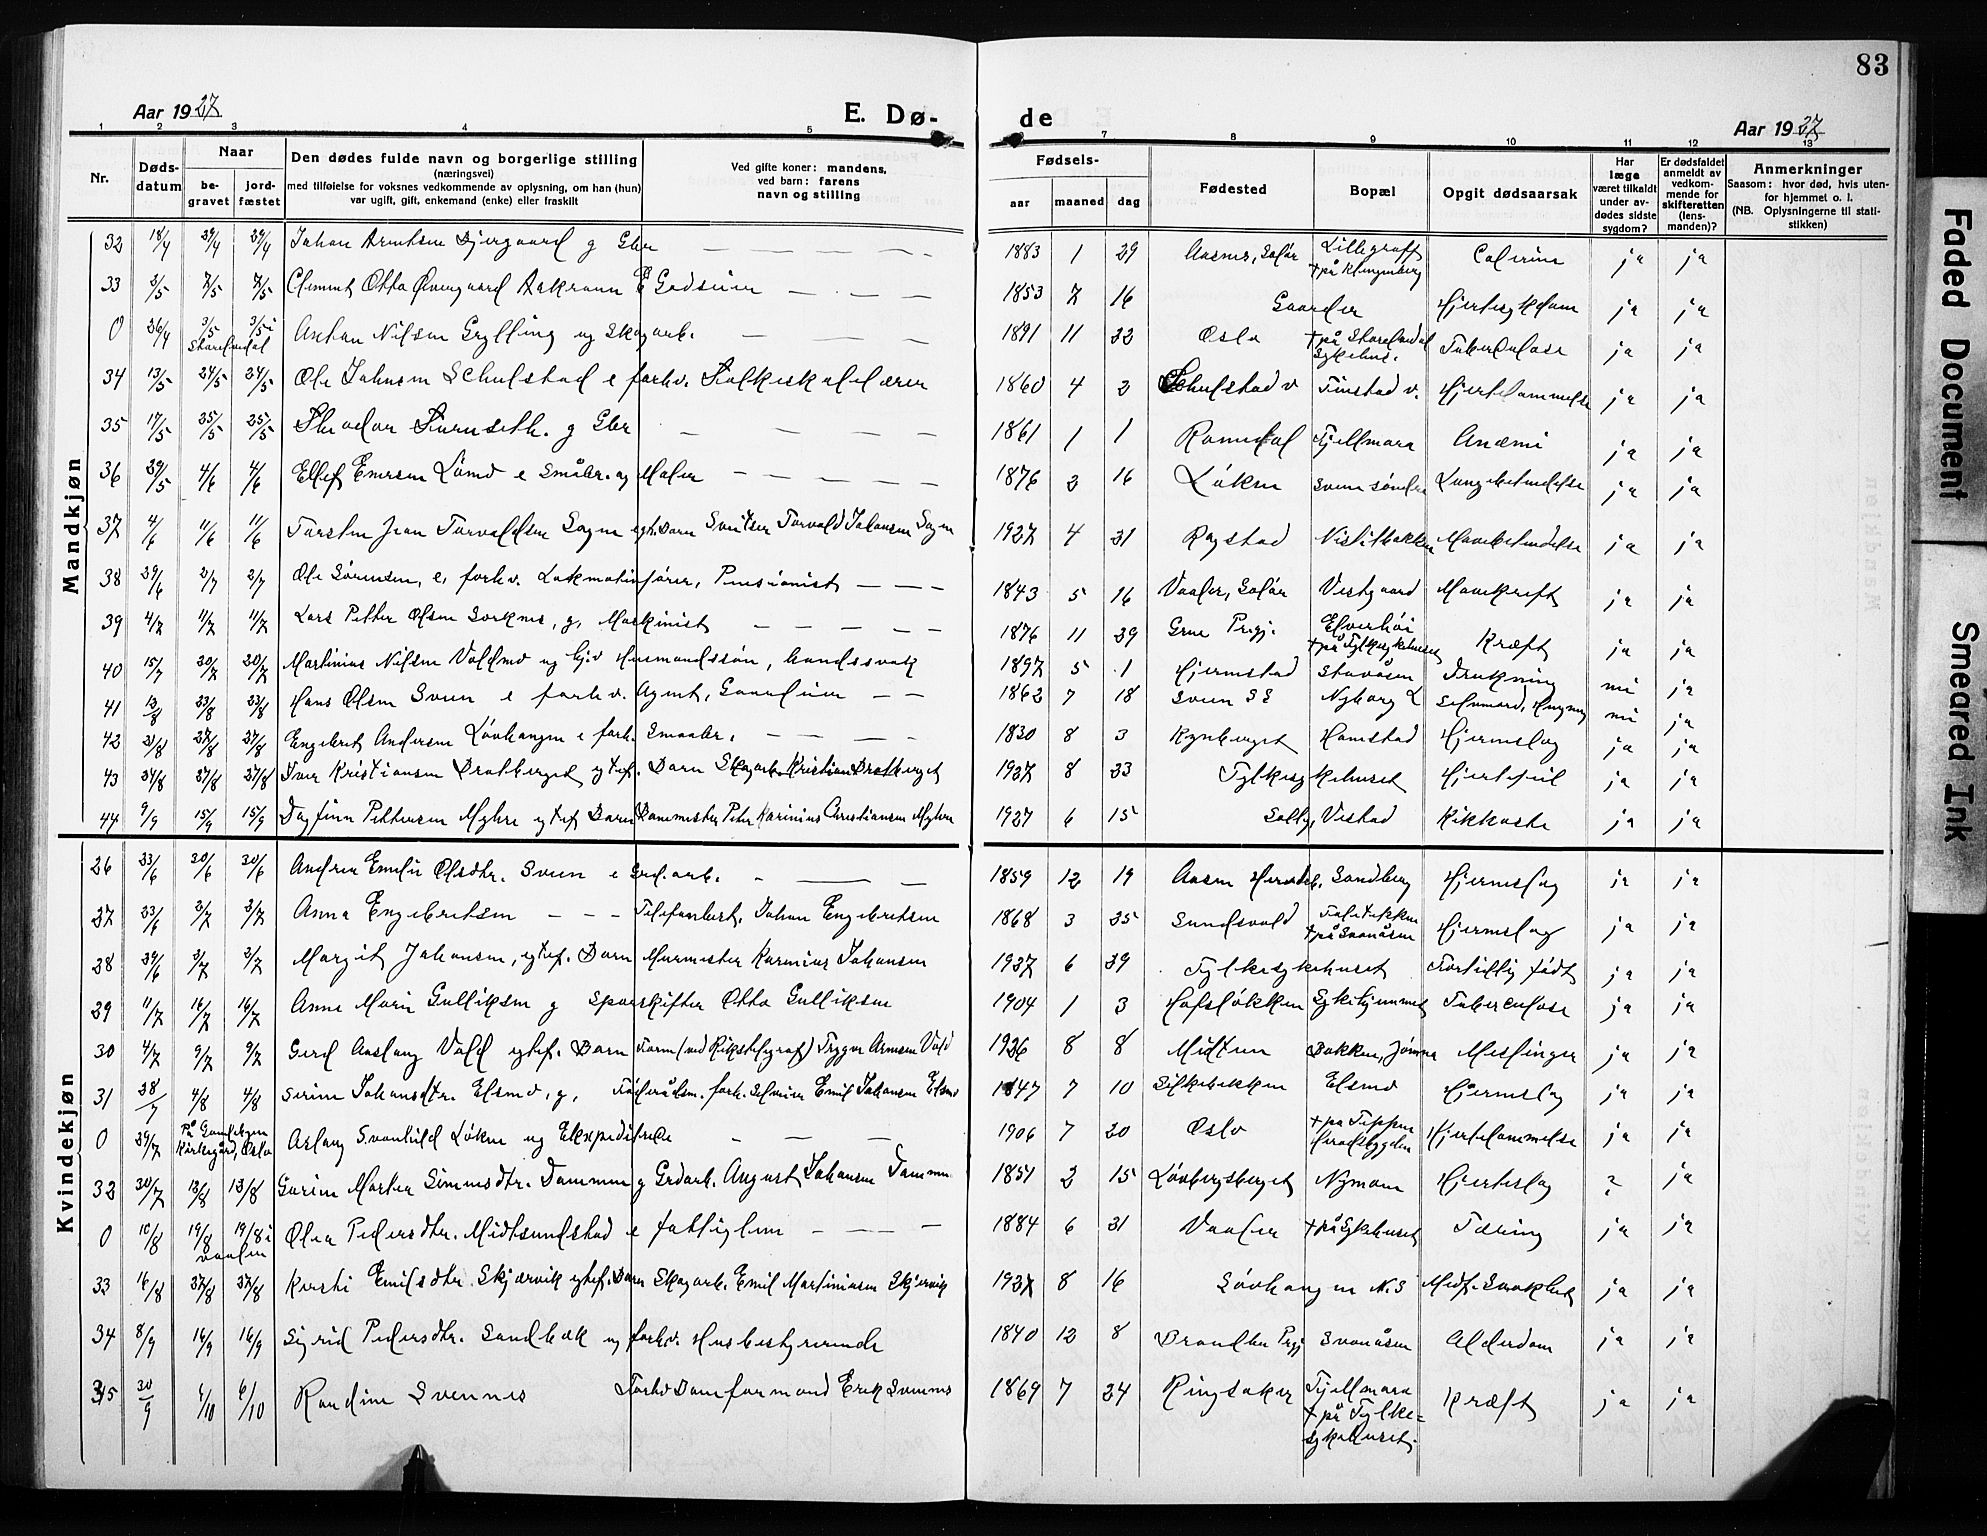 83
Aar 1927
E. Dø-
de
Aar 1927
1 2 3 4 5 7 8 9 10 11 12 13
Nr.
Døds-
datum
Naar
be-
gravet
jord-
fæstet
Den dødes fulde navn og borgerlige stilling
(næringsvei)
med tilføielse for voksnes vedkommende av oplysning, om han (hun)
var ugift, gift, enkemand (enke) eller fraskilt
Ved gifte koner: mandens,
ved barn: farens
navn og stilling
Fødsels-
aar maaned dag
Fødested
Bopæl
Opgit dødsaarsak
Har
læge
været tilkaldt
under av-
dødes sidste
sygdom?
Er dødsfaldet
anmeldt av
vedkom-
mende for
skifteretten
(lens-
manden)?
Anmerkninger
Saasom: hvor død, hvis uten-
for hjemmet o. l.
(NB. Oplysningerne til stati-
stikken)
Mandkjøn
32 18/4 29/4 29/4 Johan Arntsen Bjergaard g Gbr 1883 1 29 Aasnes, Solør ja ja
33 3/5 7/5 7/5 Clemmet Otto Øvergaard Aakrann E Gardeier 1853 7 16 Gaarder Hjertesykdom ja ja
0 26/4 3/5 3/5 i Anton Nilsen Grylling ug Skogarb. 1891 11 22 Oslo Tuberculose ja ja
34 13/5 24/5 24/5 Ole Johnsen Schulstad e forhv. Folkeskolelærer 1860 4 2 Schulstad v Finstad v. Hjertelammelse ja ja
35 17/5 25/5 25/5 Theodor Furuseth. g Gbr 1861 1 1 Romedal Fjellmora Anæmi ja ja
36 29/5 4/6 4/6 Ellef Emersen Lømo e Småbr. og Maler 1876 3 16 Løken Sveen søndre Lungebetendelse ja ja
37 4/6 11/6 11/6 Torsten Jean Torvaldsen Sogn egt. Barn Sveitser Torvald Johansen Sogn 1927 4 21 Rogstad Mavebetendelse ja ja
38 29/6 2/7 2/7 Ole Sørensen, e, forhv. Lokmotivfører, Pensionist 1843 5 16 Vaaler, Solør Vestgaard Mavekreft ja ja
39 4/7 11/7 11/7 Lars Petter Olsen Sorknes, g, Maskinist 1876 11 29 Grue Prgj. Elverhøi + på Fylkesykehuset Kræft ja ja
40 15/7 20/7 20/7 Martinius Nilsen Voldmo ug Husmandssøn, Aandssvak 1897 5 1 Hjermstad Stavåsen Drukning nei ja
41 13/8 23/8 23/8 Hans Olsen Sveen e forhv. Agent, Gaardeier 1862 7 18 Sveen SE Nyborg L Selvmord, Hengning nei ja
42 21/8 27/8 27/8 Engebret Andersen Løvhaugen e forh. Smaabr. 1830 8 3 Rynberget Hamstad Hjerneslag ja ja
43 24/8 27/8 27/8 Iver Kristiansen Bratberget egtef. Barn Skogarb. Kristian Bratberget 1927 8 23 Fylkesykehuset Hjertefeil ja ja
44 9/9 15/9 15/9 Dagfinn Pettersen Myhre egtef Barn Banemester Peter Karinius Christiansen Myhre 1927 6 15 Solby, Vestad Kikhoste ja ja
Kvindekjøn
26 23/6 30/6 30/6 Andrea Emilie Olsdtr. Sveen e Grd.arb. 1859 12 19 Sandberg Hjerneslag ja ja
27 23/6 2/7 2/7 Anna Engebretsen Telefonbest. Johan Engebretsen 1868 3 25 Sundsvold + på Svanåsen Hjerneslag ja ja
28 29/6 2/7 2/7 Margit Johansen, egtef. Barn Murmester Karinius Johansen 1927 6 29 Fylkesykehuset Fortidlig født ja ja
29 11/7 16/7 16/7 Anne Marie Gulliksen g Sporskifter Otto Gulliksen 1904 1 3 Hofsløkken Sykehjemmet Tuberculose ja ja
30 4/7 9/7 9/7 Gerd Aaslaug Vold egtef. Barn Form (ved Rikstelegraf) Trygve Arnesen Vold 1926 8 8 Midtun Bakken, Jømna Meslinger ja ja
31 28/7 4/8 4/8 Serine Johansdtr. Elsmo, g, Føderådsm. forh. Selveier Emil Johansen Elsmo 1847 7 10 Silkebekken Elsmo Hjerneslag ja ja
0 29/7 På Gamlebyen Kirkegård, Oslo Aslaug Svanhild Løken ug Ekspeditrice 1906 7 20 Oslo Hjertelammelse ja ja
32 30/7 13/8 13/8 Gurine Marthea Simensdtr. Dammen g Grdarb. August Johansen Dammen 1851 2 15 Løvbergsberget Nymoen Hjerteslag ? ja
0 10/8 19/8 19/8 i Vaaler Olea Pedersdtr. Midtsundstad e fattiglem 1884 6 21 Vaaler + på Sykehuset Tæring ja ja
33 16/8 27/8 27/8 Kirsti Emilsdtr. Skjærvik egtef. Barn Skogarb. Emil Martiniusen Skjervik 1927 8 16 Løvhaugen N.S Medf. Svakhet ja ja
34 8/9 16/9 16/9 Sigrid Pedersdtr. Sandbæk ug forhv. Husbestyrerinde 1840 12 8 Brandbu Prgj Svanåsen Alderdom ja ja
35 30/9 6/10 6/10 Randine Svennes Forhv Baneformand Erik Svennes 1869 7 24 Ringsaker Fjellmora + på Fylke- sykehuset. Kræft ja ja
Faded Document
Smeared Ink